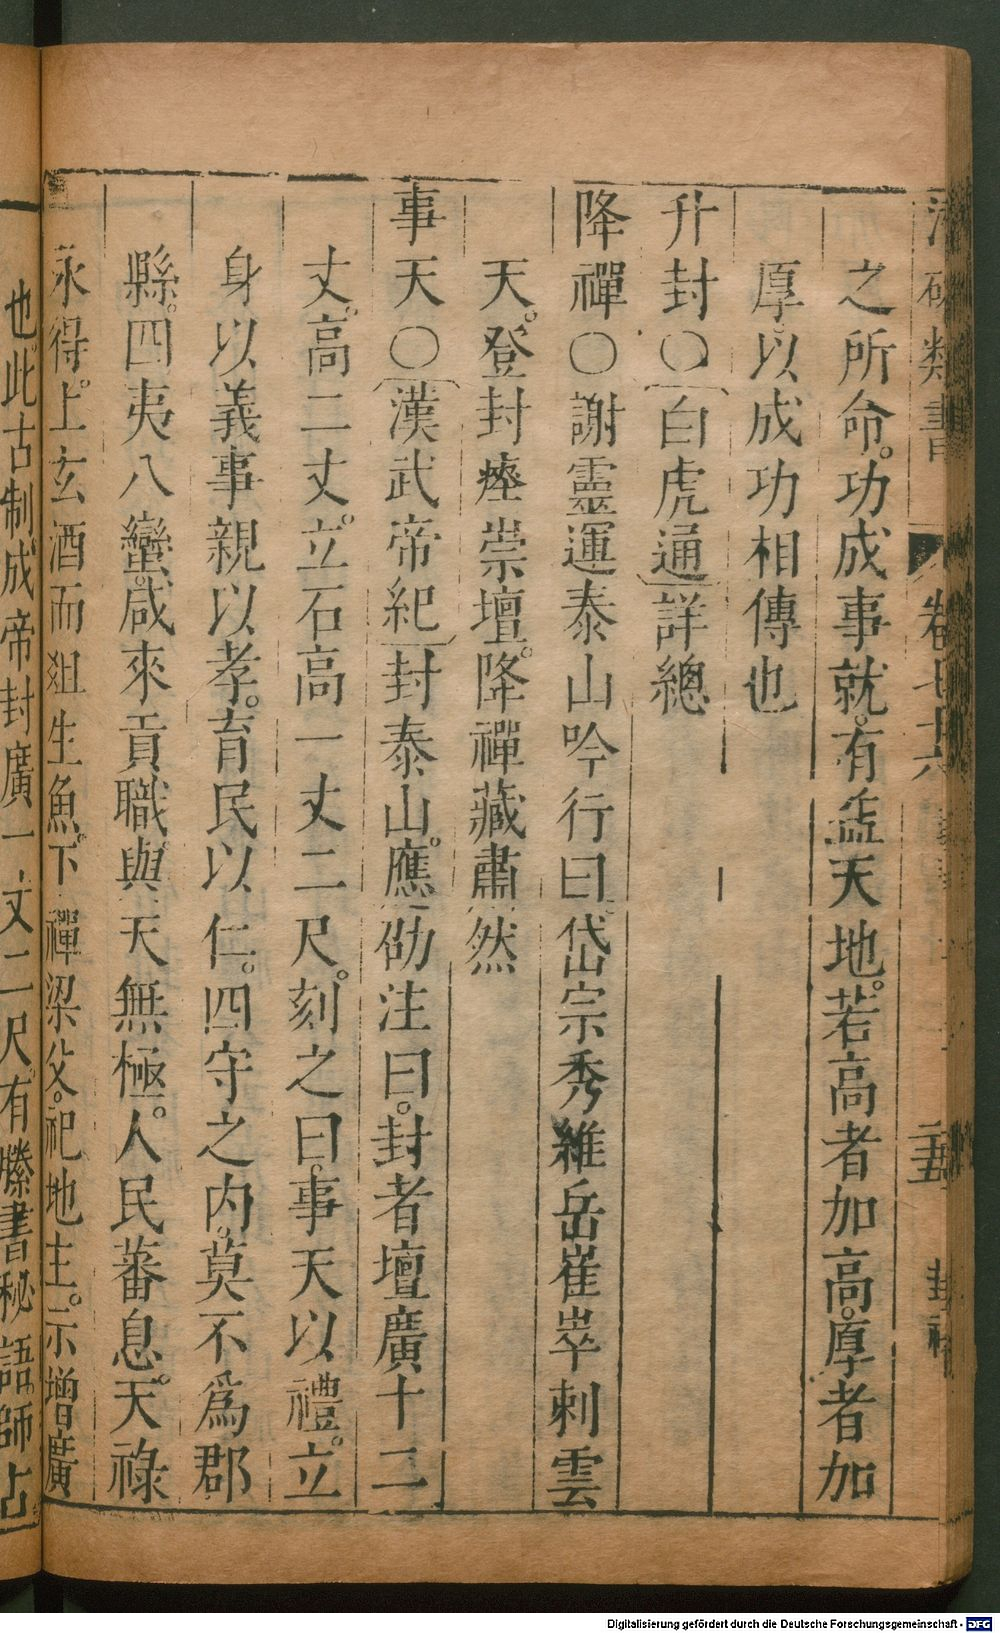 類書 卷七十六 封禪
之所命。功成事就。有益天地。若高者加高。厚者加
厚。以成功相傳也
升封○白虎通詳總
降禪○謝靈運泰山吟行曰岱宗秀維岳崔崒刺雲
天。登封瘞崇壇。降禪藏肅然
事天○漢武帝紀封泰山。應劭注曰。封者壇廣十二
丈。高二丈。立石高一丈二尺。刻之曰。事天以禮。立
身以義事親以孝。育民以仁。四守之內。莫不爲郡
縣。四夷八蠻。咸來貢職。與天無極。人民蕃息。天祿
永得。上玄酒而俎生魚。下禪梁父。祀地主。示增廣
也。此古制成帝封廣一丈二尺。有縢書秘語。師占
Digitalisierung gefördert durch die Deutsche Forschungsgemeinschaft - DFG